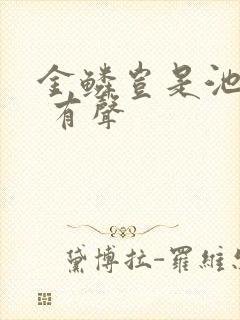 金鱗豈是池
有聲
黛博拉-羅維